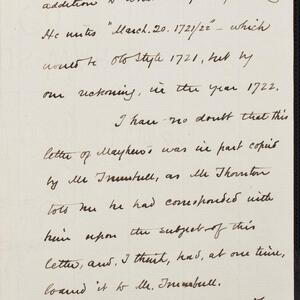 addition to
He writes "March. 20. 1721/22" – which
would be Old Style 1721, but by
our reckoning, in the year 1722.
I have no doubt that this
letter of Mayhew's was in part copied
by Mr Trumbull, as Mr Thornton
told me he had corresponded with
him upon the subject of this
letter, and, I think, had, at one time,
loaned it to Mr. Trumbull.